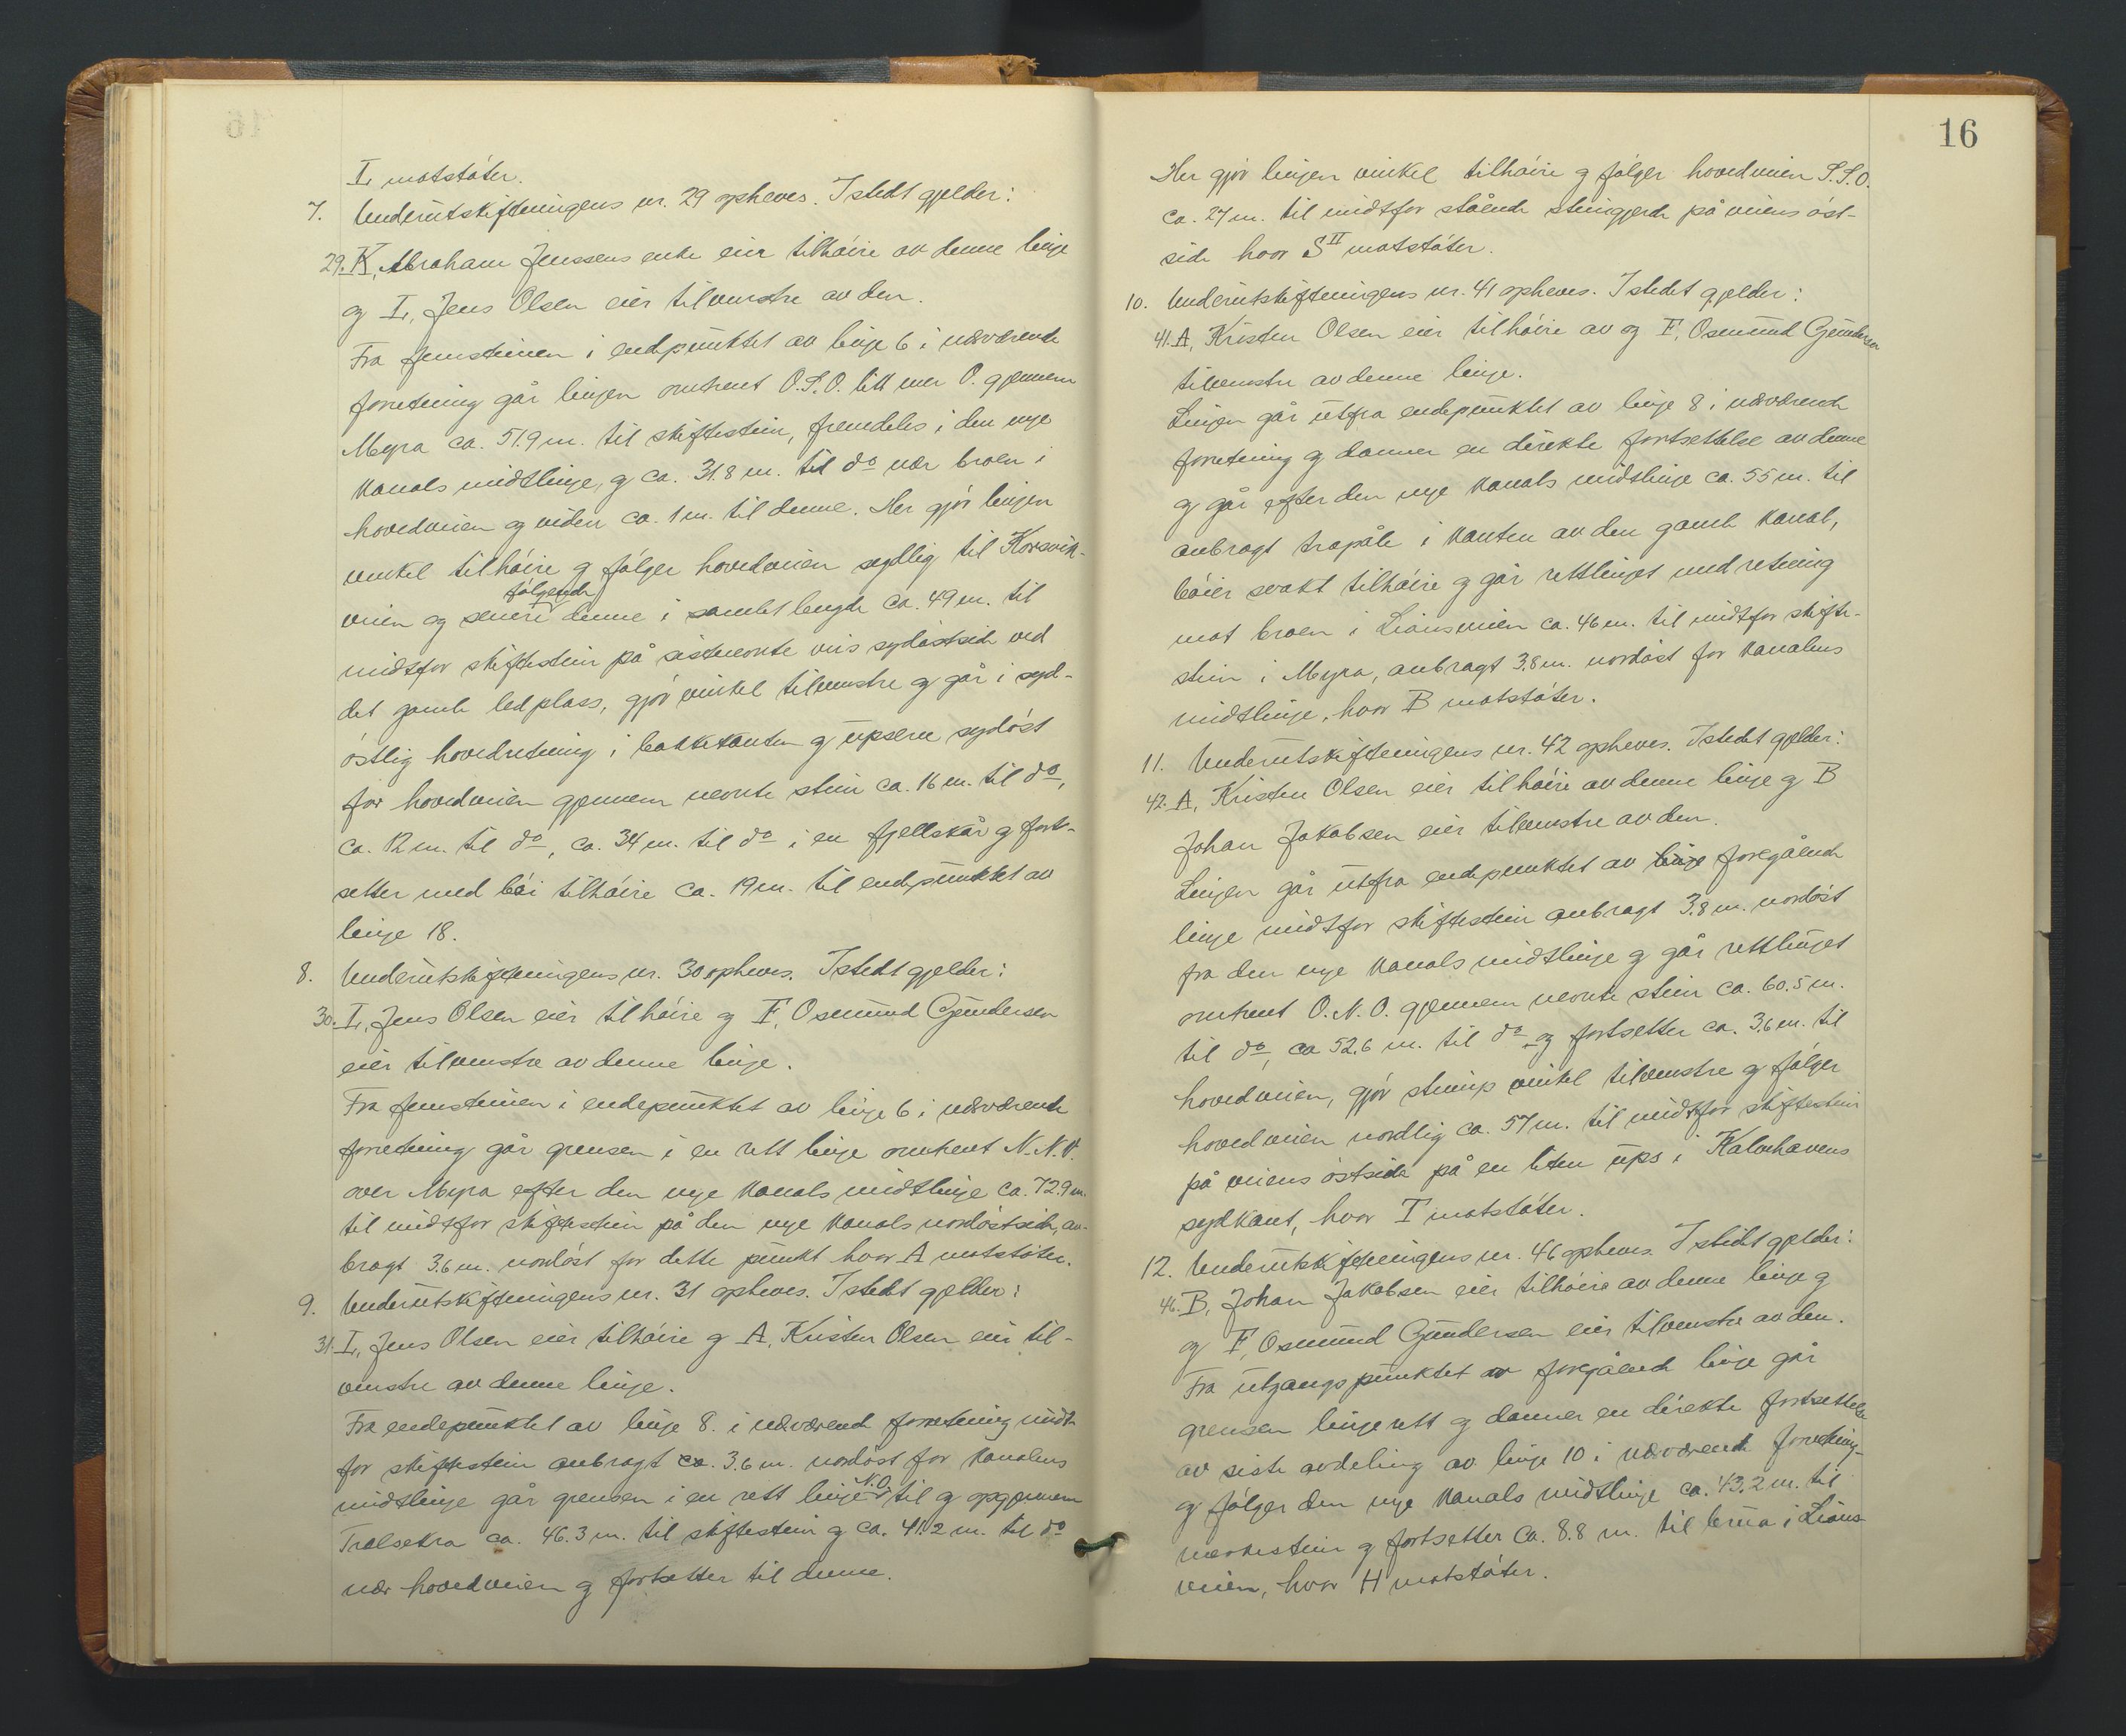 I, motstöter.
7. Underutskiftningens nr. 29 opheves. Istedt gjelder:
29. K, Abraham Jenssens enke eier tilhöire av denne linje
og I, Jens Olsen eier tilvenstre av den.
Fra jernsteinen i endepunktet av linje 6 i nærværende
forretning går linjen omtrent O.S.O. litt mer O. gjennem
Myra ca. 51.9 m. til skiftestein, fremdeles i den nye
kanals midtlinje, og ca. 31.8 m. til do nær broen i
hovedveien og videre ca. 1 m. til denne. Her gjör linjen
vinkel tilhöire og fölger hovedveien sydlig til Korsvik-
veien og senere fölgende denne i samlet lengde ca. 49 m. til
midtfor skiftestein på sistnevnte veis sydöstside ved
det gamle ledplass, gjör vinkel tilvenstre og går i syd-
östlig hovedretning i bakkekanten og upsene sydöst
for hovedveien gjennem nevnte stein ca. 16 m. til do,
ca. 12 m. til do, ca. 34 m. til do i en fjellskår og fort-
setter med böi tilhöire ca. 19 m. til endepunktet av
linje 18.
8. Underutskiftningens nr. 30 opheves. Istedt gjelder:
30. I, Jens Olsen eier tilhöire og F, Osmund Gundersen
eier tilvenstre av denne linje.
Fra jernsteinen i endepunktet av linje 6 i nærværende
forretning går grensen i en rett linje omtrent N.N.V.
over Myra efter den nye kanals midtlinje ca. 72.9 m.
til midtfor skiftestein på den nye kanals nordöstside, an-
bragt 3.6 m. nordöst for dette punkt hvor A motstöter.
9. Underutskiftningens nr. 31 opheves. Istedt gjelder:
31. I, Jens Olsen eier tilhöire og A, Kristen Olsen eier til-
venstre av denne linje.
Fra endepunktet av linje 8. i nærværende forretning midt-
for skiftestein anbragt ca. 3.6 m. nordöst for kanalens
midtlinje går grensen i en rett linje N.O. til og opgjennem
Tralsekra ca. 46.3 m. til skiftestein og ca. 41.2 m. til do
nær hovedveien og fortsetter til denne.
16
Her gjör linjen vinkel tilhöire og fölger hovedveien S.S.O.
ca. 27 m. til midtfor stående steingjerde på veiens öst-
side hvor S II motstöter.
10. Underutskiftningens nr. 41 opheves. Istedet gjelder:
41. A, Kristen Olsen eier tilhöire av og F, Osmund Gundersen
tilvenstre av denne linje.
Linjen går utfra endepunktet av linje 8 i nærværende
forretning og danner en direkte fortsettelse av denne
og går efter den nye kanals midtlinje ca. 55 m. til
anbragt trapåle i kanten av den gamle kanal,
böier svakt tilhöire og går rettlinjet med retning
mot broen i Liansveien ca. 46 m. til midtfor skifte-
stein i Myra, anbragt 3.8 m. nordöst for kanalens
midtlinje, hvor B motstöter.
11. Underutskiftningens nr. 42 opheves. Istedet gjelder:
42. A, Kristen Olsen eier tilhöire av denne linje og B
Johan Jakobsen eier tilvenstre av den.
Linjen går utfra endepunktet av linje foregående
linje midtfor skiftestein anbragt 3.8 m. nordöst
fra den nye kanals midtlinje og går rettlinjet
omtrent O.N.O. gjennem nevnte stein ca. 60.5 m.
til do, ca 52.6 m. til do og fortsetter ca. 3.6 m. til
hovedveien, gjör stump vinkel tilvenstre og fölger
hovedveien nordlig ca. 57 m. til midtfor skiftestein
på veiens östside på en liten ups i Kalvehavens
sydkant, hvor T motstöter.
12. Underutskiftningens nr. 46 opheves. Istedet gjelder:
46. B, Johan Jakobsen eier tilhöire av denne linje og
og F, Osmund Gundersen eier tilvenstre av den.
Fra utgangspunktet av foregående linje går
grensen linjerett og danner en direkte fortsettelse
av siste avdeling av linje 10 i nærværende forretning
og fölger den nye kanals midtlinje ca. 43.2 m. til
merkestein og fortsetter ca. 8.8 m. til brua i Lians-
veien, hvor H motstöter.